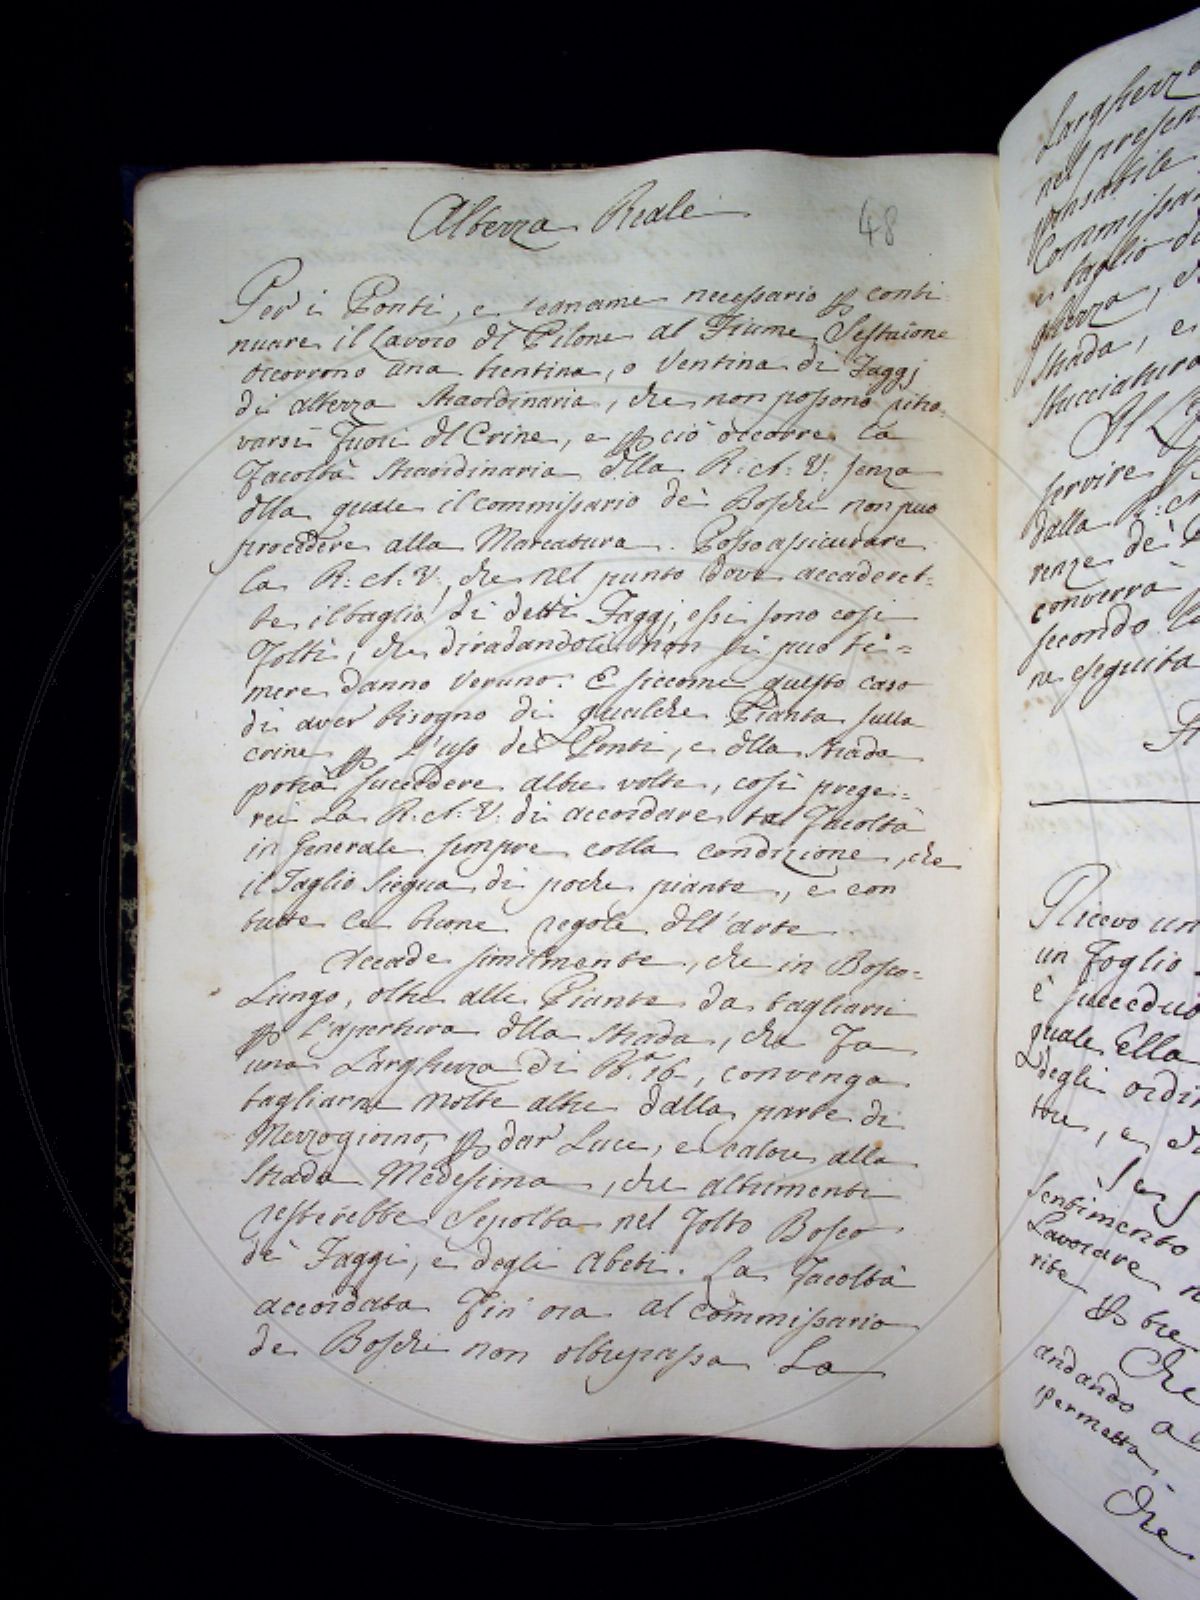 Altezza Reale
48
Per i Ponti, e legname necessario p conti
nuare il Lavoro dl Pilone al Fiume Sestaione
occorrono una trentina, o ventina di Faggj
di altezza straordinaria, che non possono ritro-
varsi fuori dl Crine, e p ciò occorre la
Facoltà straordinaria dlla R: A: V: senza
dlla quale il Commissario dei Boschi non può
procedere alla Marcatura. Posso assicurare
la R: A: V:, che nel punto dove accadereb-
be il taglio di detti Faggj, essi sono così
Folti, che diradandoli non si può te=
mere danno veruno. E siccome questo caso
di aver bisogno di qualche Pianta sulla
crine p l'uso dei Ponti, e dlla strada
potrà succedere altre volte, così prege=
rei La R: A: V: di accordare tal Facoltà
in Generale sempre colla condizione, che
il Taglio siegua di poche piante, e con
tutte le buone regole dll'arte
Accade similmente, che in Bosco-
Lungo, oltre alle Piante da tagliarsi
p l'apertura dlla strada, che Fa
una Larghezza di B.a 16, convenga
tagliarne molte altre dalla parte di
Mezzogiorno, p dar Luce, e calore alla
Strada Medesima, che altrimenti
resterebbe Sepolta nel Folto Bosco
dei Faggi, e degli Abeti. La Facoltà
accordata Fin'ora al Commissario
de Boschi non oltrepassa La
Larghezza
nel presen
pansabile
Commissar
e taglio di
strada, e
stucciatura
servire
dalla R: A
renze dei
converrà
secondo
ne eseguita
Ricevo un
un Foglio
è succeduto
quale Ella
degli ordin
tore, e
sentimento
Lavorare
rite
p tre
Che
andando a
permetta
Che